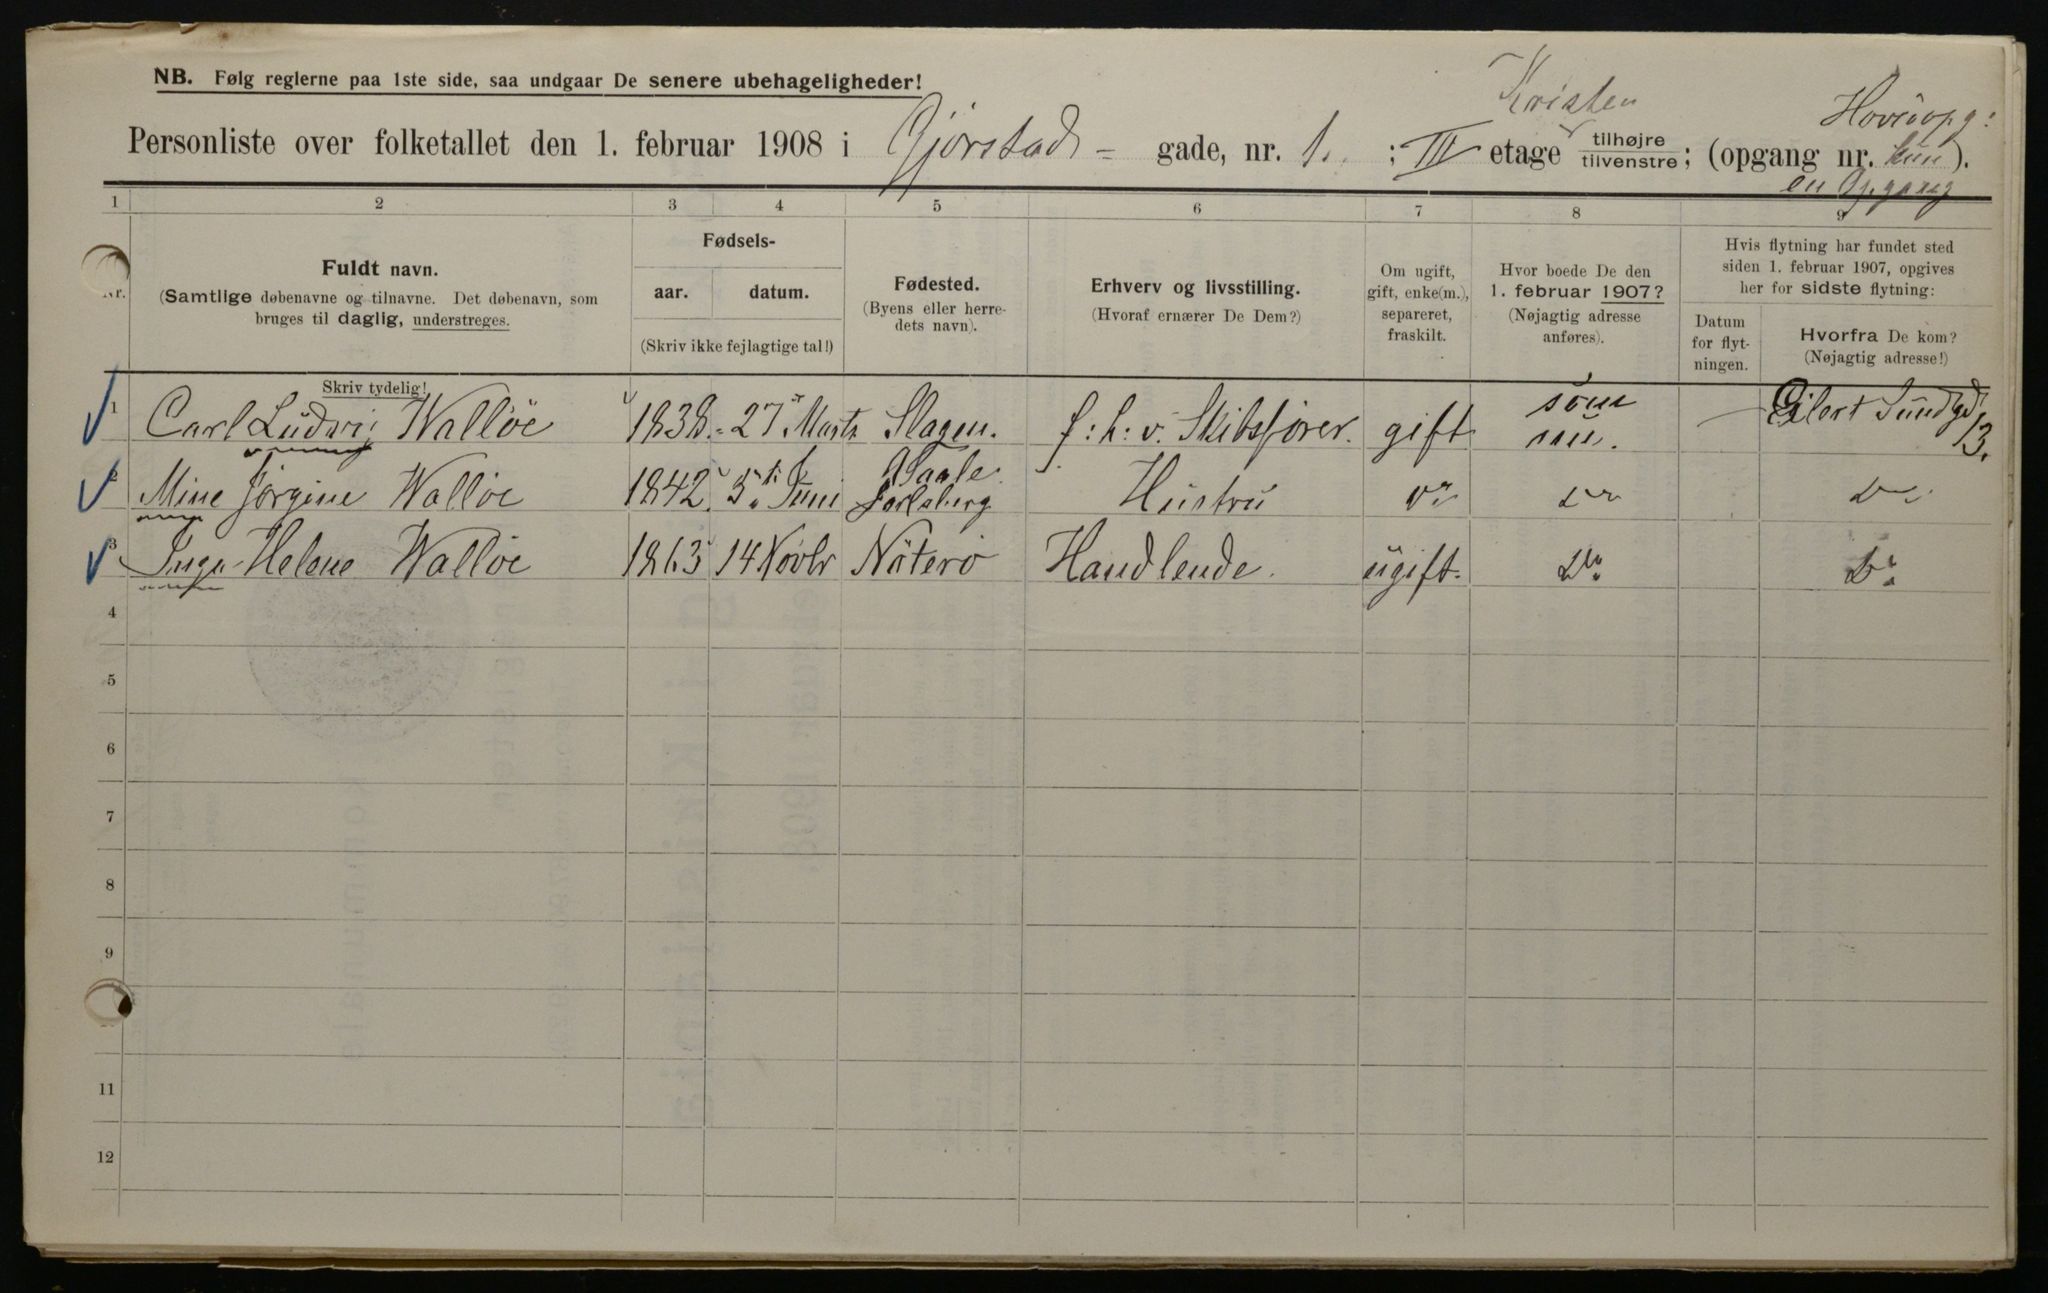 NB. Følg reglerne paa 1ste side, saa undgaar De senere ubehageligheder!
Kristen
Hovedopg:
Personliste over folketallet den 1. februar 1908 i Gjørstads - gade, nr. 1. ; III etage tilhøjre tilvenstre; (opgang nr. kun).
en Opgang
1 2 3 4 5 6 7 8 9
Nr.
Fuldt navn.
(Samtlige døbenavne og tilnavne. Det døbenavn, som
bruges til daglig, understreges.
Skriv tydelig!
Fødsels-
aar. datum.
(Skriv ikke fejlagtige tal!)
Fødested.
(Byens eller herre-
dets navn).
Erhverv og livsstilling.
(Hvoraf ernærer De Dem?)
Om ugift,
gift, enke(m.),
separeret,
fraskilt.
Hvor boede De den
1. februar 1907?
(Nøjagtig adresse
anføres).
Hvis flytning har fundet sted
siden 1. februar 1907, opgives
her for sidste flytning:
Datum
for flyt-
ningen.
Hvorfra De kom?
(Nøjagtig adresse!)
1 Carl Ludvig Walløe 1838. 27 Marts Slagen. f: h: v. Skibsfører. gift som nu. Eilert Sundgd 13.
2 Mine Jørgine Walløe 1842. 5. Juni Jarlsberg Hustru Do Do Do
3 Inga Helene Walløe 1863 14 Novbr Nøterø Handlende. ugift. Do. Do.
4
5
6
7
8
9
11
12